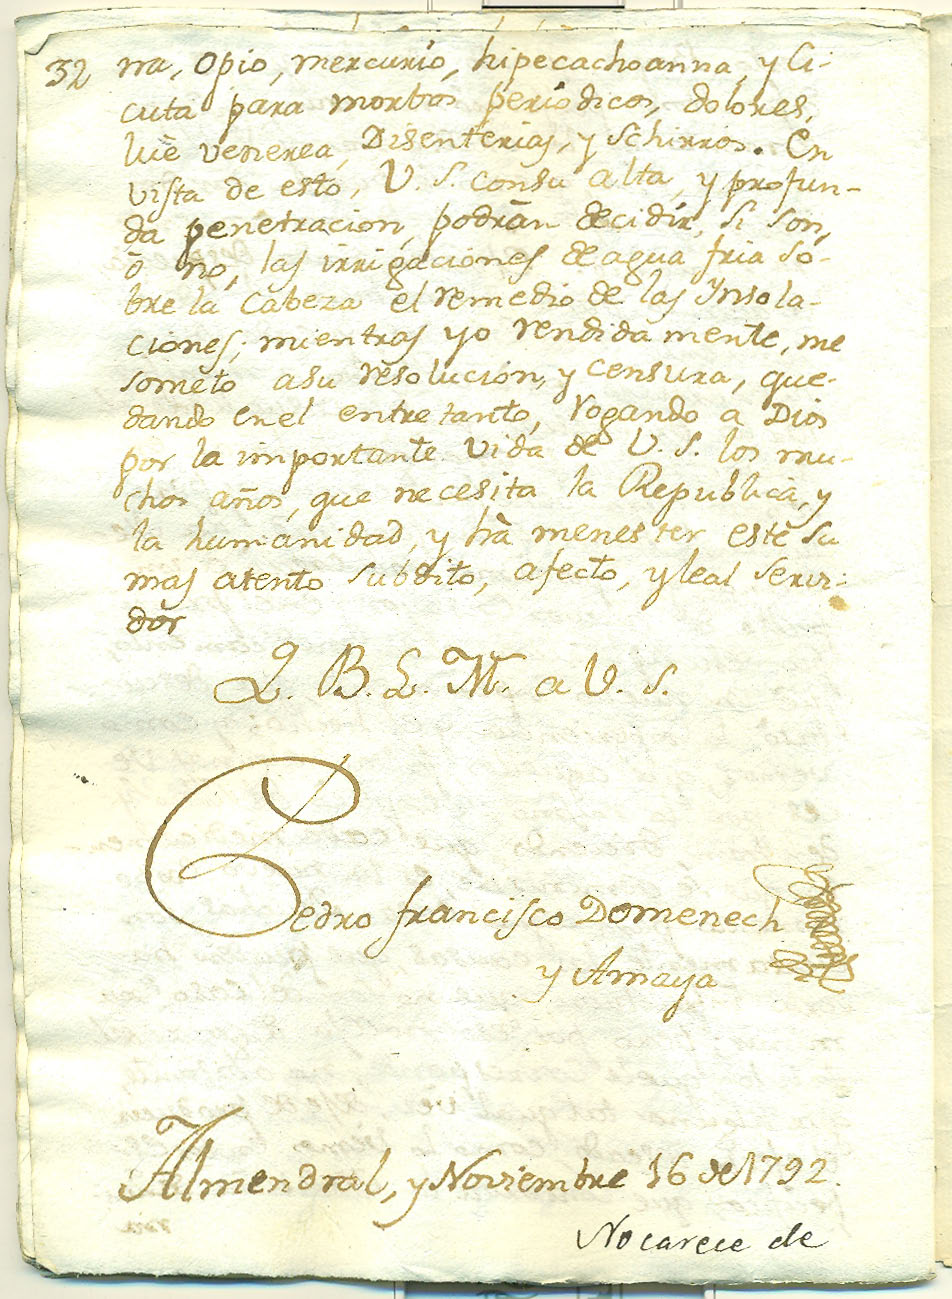 32 na, Opio, mercurio, hipecachoanna, y Ci-
cuta para morbos periodicos, dolores,
luè venerea, Disenterias, y Schirros. En
vista de esto, V. S. consu alta, y profun-
da penetracion, podràn decidir, si son,
ò no, las irrigaciones de agua fria so-
bre la Cabeza el remedio de las Insola-
ciones; mientras yo rendidamente, me
someto asu resolucion, y censura, que-
dando enel entretanto, rogando a Dios
por la importante vida de V. S. los mu-
chos años, que necesita la Republica, y
la humanidad, y hà menester este su
mas atento subdito, afecto, y leal servi-
dor
Q. B. L. M. a V. S.
Pedro francisco Domenech
y Amaya
Almendral, y Noviembre 16 de 1792.
No carece de